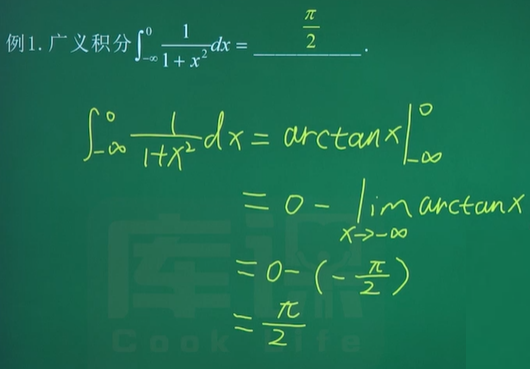 例1. 广义积分∫_{-∞}^{0} \frac{1}{1+x^2}dx = \frac{π}{2}.
∫_{-∞}^{0} \frac{1}{1+x^2}dx = arctanx|_{-∞}^{0}
= 0 - lim_{x→-∞} arctanx
= 0-(-\frac{π}{2})
= \frac{π}{2}
库课
Cook Life